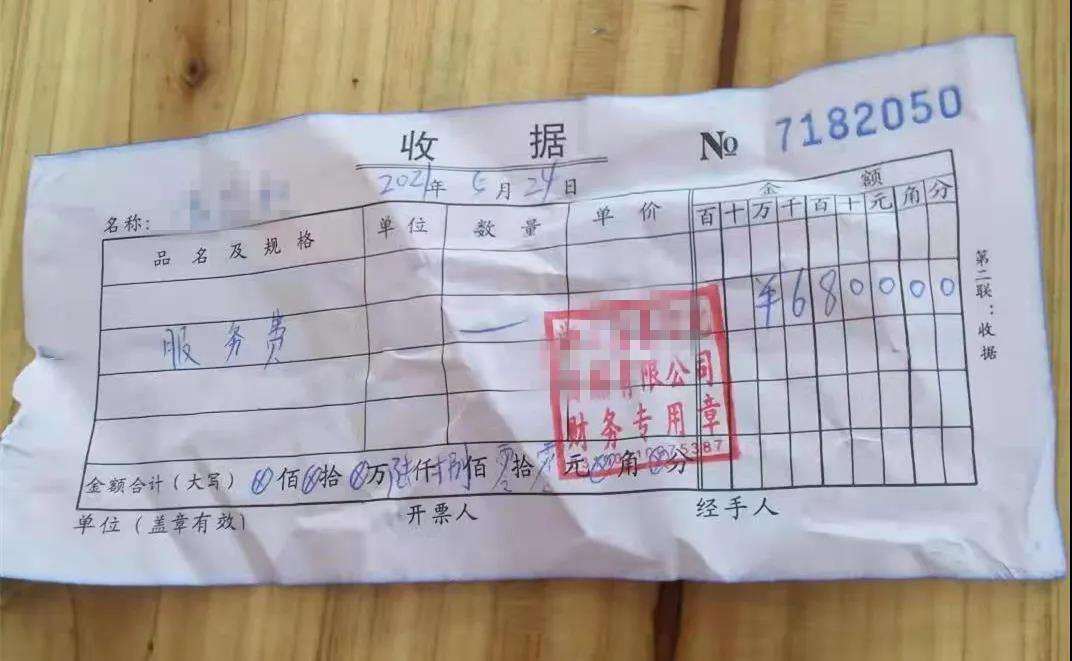 收 据
№ 7182050
2021年 5月 24日
名称:
品名及规格 单位 数量 单价 金额
百 十 万 千 百 十 元 角 分
服务费 一 ¥680000
有限公司
财务专用章
金额合计(大写) ⊗佰⊗拾⊗万陆仟捌佰零拾零元⊗角⊗分
单位(盖章有效) 开票人 经手人
第二联:收据